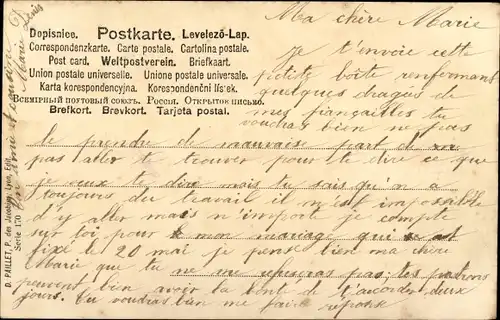 Ma chère Marie
Je t'envoie cette
petite boîte renfermant
quelques dragés de
mes fiançailles tu
voudras bien ne pas
Dopisnice. Postkarte. Levelező-Lap.
Correspondenzkarte. Carte postale. Cartolina postale.
Post card. Weltpostverein. Briefkaart.
Union postale universelle. Unione postale universale.
Karta korespondencyjna. Korespondenční lístek.
Всемірный почтовый союзъ. Россія. Открытое письмо.
Brefkort. Brevkort. Tarjeta postal.
le prendre de mauvaise part de
pas aller te trouver pour te dire ce que
je veux te dire mais tu sais qu'on a
toujours du travail il m'est impossible
d'y aller mais n'importe je compte
sur toi pour mon mariage qui est
fixé le 20 mai je pense bien ma chère
Marie que tu ne me refuseras pas tes patrons
peuvent bien avoir la bonté de t'accorder deux
jours. Tu voudras bien me faire réponse
Ton amie et cousine
Marie
D. PAILLET, P. des Jacobins, Lyon, Edit.
Serie 170